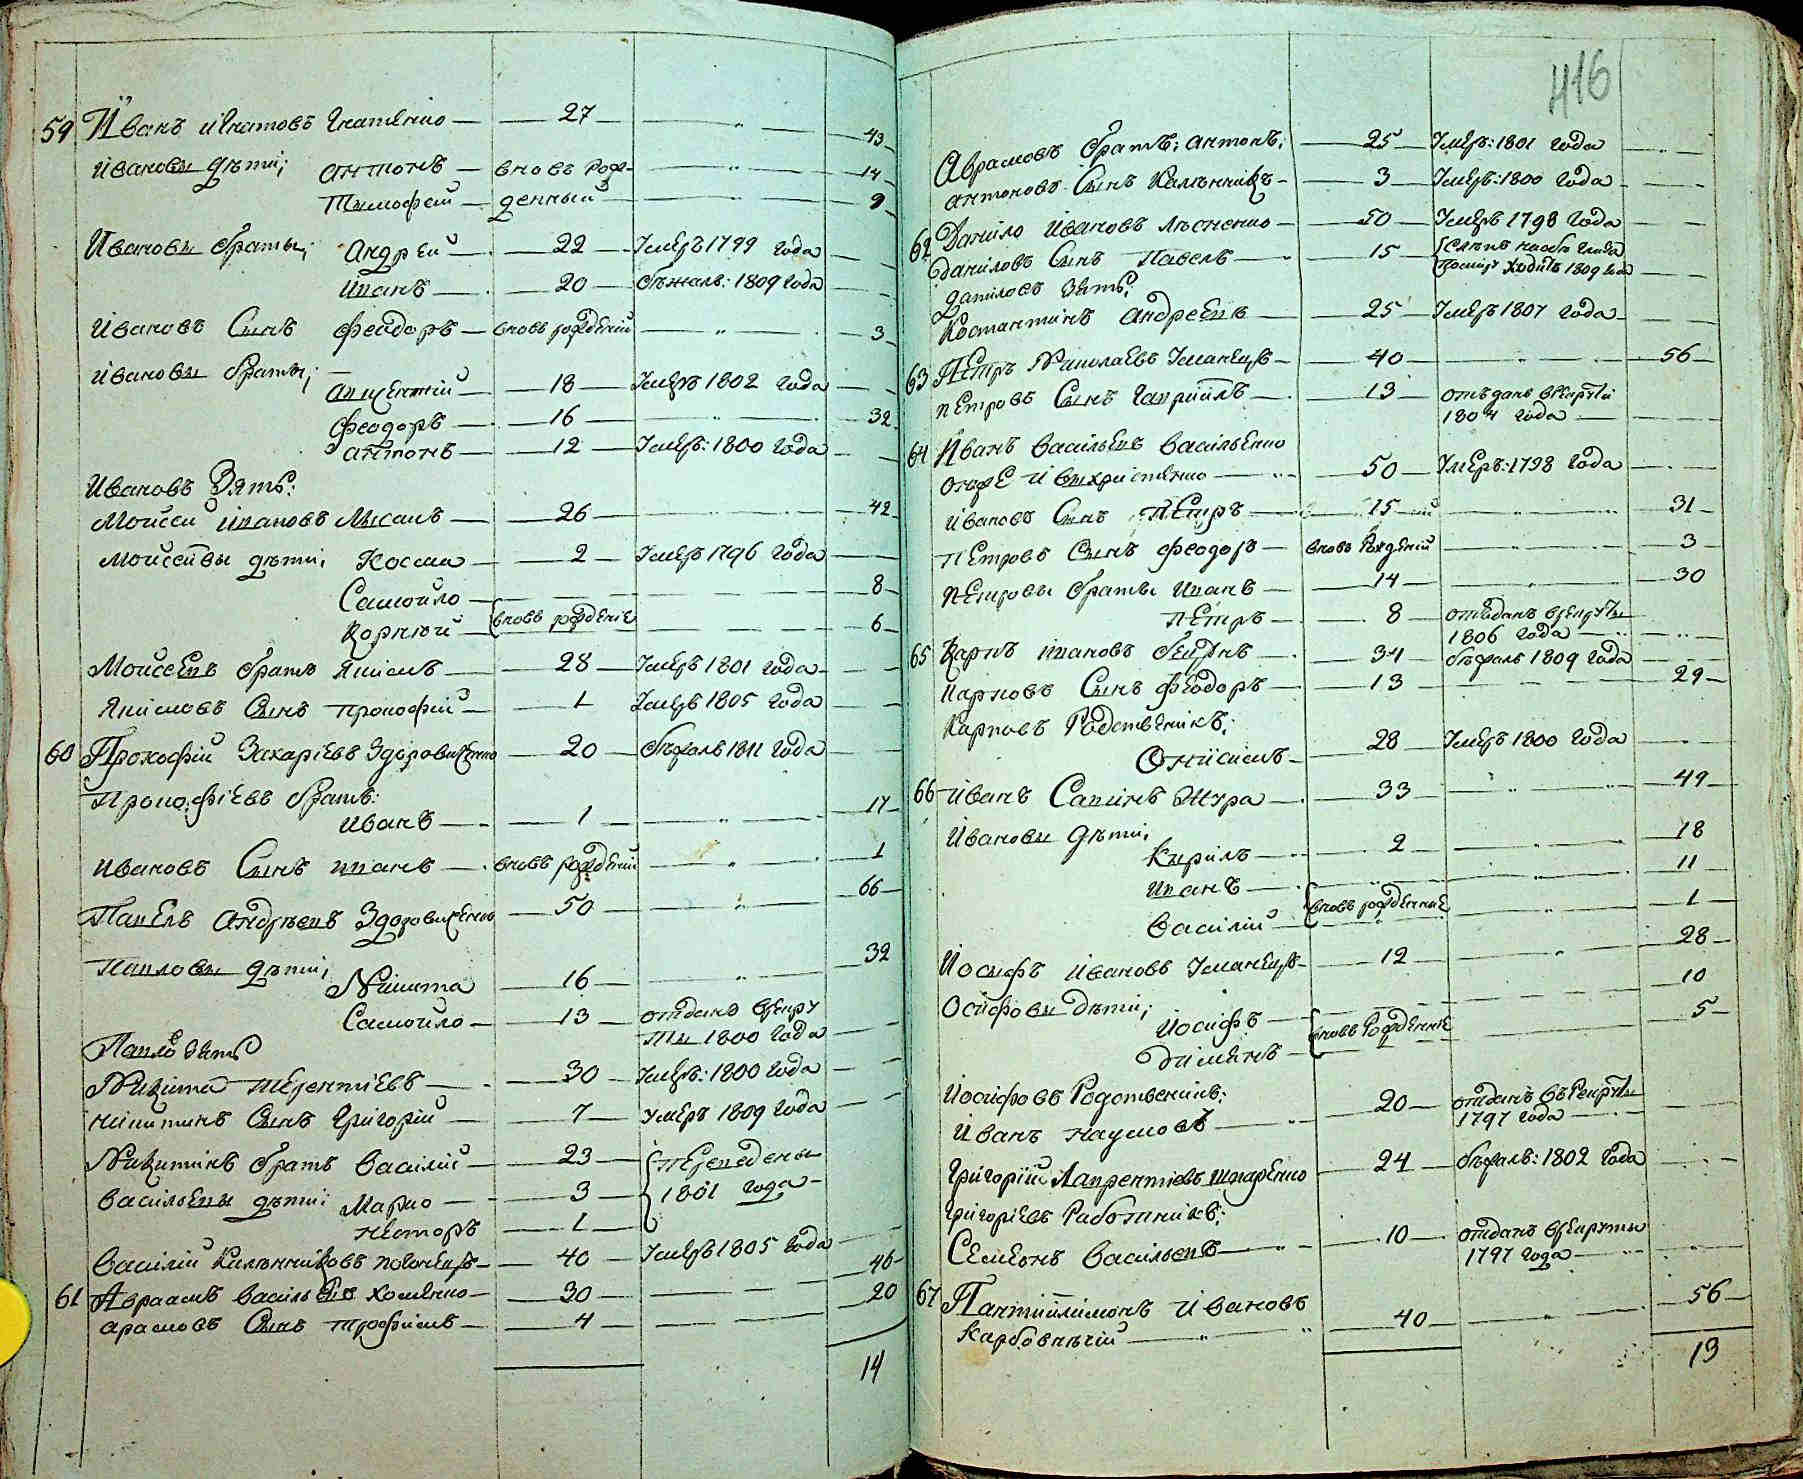 59 Иванъ Игнатовъ Гнатенко — 27 — 43
Ивановы дѣти; антонъ — вновь рож- — 14
Тимофей — денный — 9
Ивановы братья; Андрей — 22 — Умеръ 1799 года
Иванъ — 20 — бѣжалъ: 1809 года
Ивановъ Сынъ феодоръ — вновь рожденій — 3
Ивановы братья; —
авксентій — 18 — Умеръ 1802 года
феодоръ — 16 — 32
антонъ — 12 — Умеръ: 1800 года
Ивановъ Зять:
Моисей ивановъ — 26 — 42
Моисеевы дѣти; Косма — 2 — Умеръ 1796 года
Самойло — 8
Корней — вновь рожденіе — 6
Моисеевъ братъ Якимъ — 28 — Умеръ 1801 года
Якимовъ Сынъ прокофій — 1 — Умеръ 1805 года
60 Прокофій Захаріевъ Здоровиченко — 20 — бѣжалъ 1811 года
Прокофіевъ братъ:
Иванъ — 1 — 17
Ивановъ Сынъ иванъ — вновь рожденій — 1
Павелъ Андрѣевъ Здоровиченко — 50 — 66
Павловы дѣти; Никита — 16 — 32
Самойло — 13 — отданъ врекру
ты 1800 года
Павлов Зять
Никита терентіевъ — 30 — Умеръ: 1800 года
никитинъ Сынъ Григорій — 7 — умеръ 1809 года
Никитинъ братъ Василій — 23 — переведены
Васильевы дѣти: Марко — 3 — 1801 года
Несторъ — 1
Василій Калѣнниковъ — 40 — Умеръ 1805 года — 46
61 Авраамъ василь хоменко — 30 — 20
арамовъ Сынъ трофимъ — 4
14
416
Аврамовъ братъ; антонъ; — 25 — Умеръ: 1801 года
антоновъ Сынъ Калѣнникъ — 3 — Умеръ: 1800 года
62 Данило Ивановъ — 50 — Умеръ 1798 года
Даниловъ Сынъ Павелъ — 15 — ходитъ 1809 года
даниловъ Зять;
Костантинъ Андреевъ — 25 — Умеръ 1807 года
63 Петръ Николаевъ Уманецъ — 40 — 56
петровъ Сынъ Гавриилъ — 13 — отъданъ врекруты
1804 года
64 Иванъ Васильевъ Василенко
онже и — 50 — Умеръ: 1798 года
ивановъ Сынъ Петръ — 15 — 31
Петровъ Сынъ феодоръ — вновь рожденій — 3
Петровы братья Иванъ — 14 — 30
Петръ — 8 — отъданъ врекруты
1806 года
65 Карпъ ивановъ — 34 — бѣжалъ 1809 года
Карповъ Сынъ феодоръ — 13 — 29
Карповъ Родственикъ;
Онисимъ — 28 — Умеръ 1800 года
66 Иванъ Савинъ Шура — 33 — 49
Ивановы дѣти;
Кирилъ — 2 — 18
Иванъ — 11
Василій — вновь рожденніе — 1
Иосифъ Ивановъ Уманецъ — 12 — 28
Осифовы дѣти; — 10
Иосифъ — вновь Рожденніе — 5
Дименъ
Иосифовъ Родственикъ:
Иванъ наумовъ — 20 — отданъ въ Рекруты
1797 года
Григорій Лаврентіевъ — 24 — бѣжалъ: 1802 года
Григоріевъ Работникъ;
Семенъ Васильевъ — 10 — отданъ врекруты
1797 года
67 Пантилимонъ Ивановъ
Карбовничій — 40 — 56
13